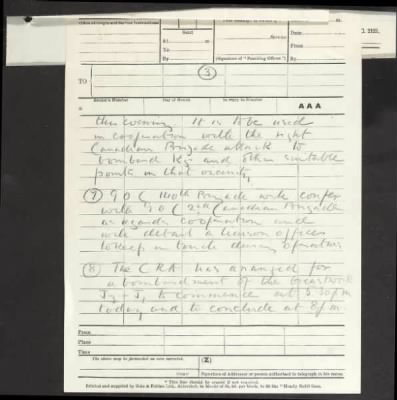 Office of Origin and Service Instructions
Sent
Date
At
To
From
By
(Signature of "Franking Officer")
By
TO
3
Sender's Number
Day of Month
In reply to Number
AAA
this evening It is to be used
in cooperation with the right
Canadian Brigade attack to
bombard and other suitable
points in that vicinity
(7) GOC 140th Brigade will confer
with GOC 2nd Canadian Brigade
as regards cooperation and
will detail a liaison officer
to keep in touch during operations
(8) The CRA has arranged for
a bombardment of the breastwork
to commence at 5.30 pm
today and to conclude at 8 pm
From
Place
Time
The above may be forwarded as now corrected.
(Z)
Censor.
Signature of Addressor or person authorised to telegraph in his name.
* This line should be erased if not required.